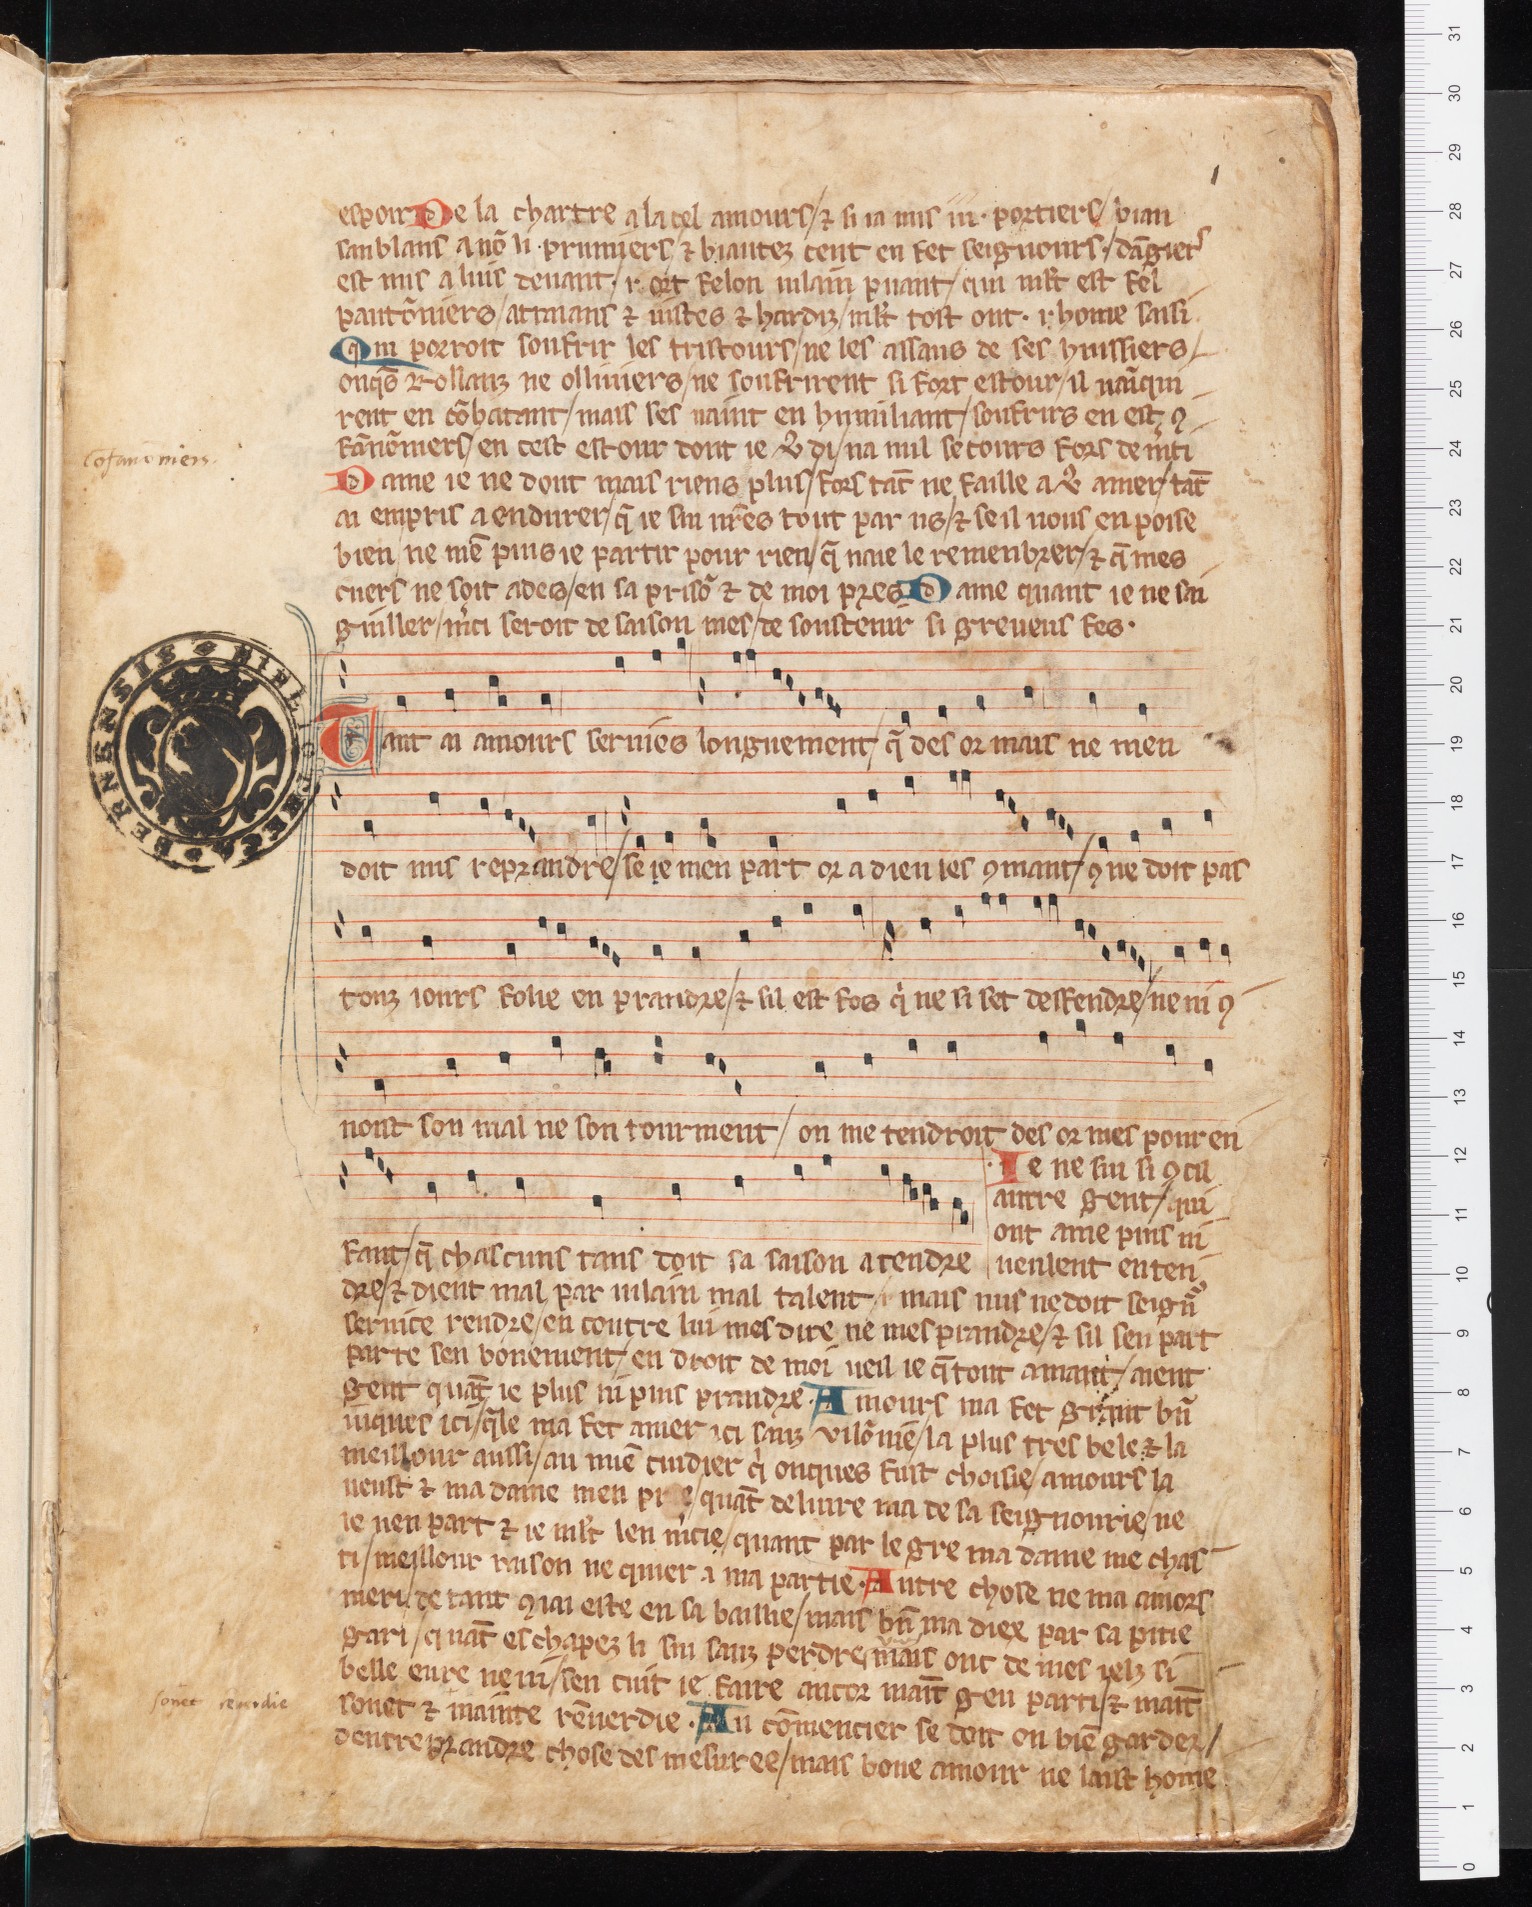 1
espoir De la chartre a la cel amours/⁊ si ia mis iii· portiers/bian
sanblans a nõ li prumiers/⁊ biautez cent en fet seignours·/dãgier
est mis a luis deuant/r ort felon uilain puant/qui mlt est fel
pautõniers/atmans ⁊ uistes ⁊ hardiz/mlt tost ont· r home saisi
Qui porroit soufrir les tristours/ne les assaus de ses huissiers/
onqs Rollanz ne oliuiers/ne soufrirent si fort estour/il uaĩqui
rent en cõbatant/mais ses uaint en humiliant/soufrirs en est ꝯ
fanõniers/en cest estour dont ie v9 di/na nul secours fors de mci
cofanõniers.
Dame ie ne dout mais riens plus/fors tãt ne faille a v9 amer/tãt
ai empris a endurer/q̃ ie sui ures tout par us/⁊ se il uous en poise
bien/ne mẽ puis ie partir pour rien/q̃ naie le remenbrer/⁊ q̃ mes
cuers ne soit ades/en sa prisõ ⁊ de moi pres Dame quant ie ne sai
guiller/mci seroit de saison mes/de soustenir si greueus fes·
BIBLIOTHECA BERNENSIS
Tant ai amours seruies longuement/q̃ des or mais ne men
doit nus reprandre/se ie men part or a dieu les ꝯmant/ꝯ ne doit pas
touz iours folie en prandre/⁊ sil est fos q ne si set deffendre/ne ni ꝯ
noist son mal ne son tourment/on me tendroit des or mes pour en
fant/q̃ chascuns tans doit sa saison atendre
Ie ne sui si ꝯ cil
autre gent/qui
ont ame puis ni
ueulent enten
dre/⁊ dient mal par uilain mal talent/mais nus ne doit seignr
seruice rendre/en contre lui mesdire ne mesprandre/⁊ sil sen part
parte sen bonement/en droit de moi ueil ie q̃ tout amant/aient
gent quãt ie plus ni puis prandre·Amours ma fet grant bñ
iusques ici/qle ma fet amer ici sanz vilõnie/la plus tres bele ⁊ la
meillour aussi/au miẽ cuidier q onques fust choisie/amours la
ueust ⁊ ma dame men prie/quãt deliure ma de sa seignourie/ne
ie nen part ⁊ ie mlt len mcie/quant par le gre ma dame me chas
ti/meillour raison ne quier a ma partie·Autre chose ne ma amors
meri/de tant ꝯ iai este en sa baillie/mais bñ ma diex par sa pitie
gari/quãt eschapez li sui sanz perdre/mais ont de mes ielz si
belle eure ne ui/sen cuit ie faire ancor maĩt geu parti/⁊ maĩt
sonet ⁊ mainte rẽuerdie·Au cõmencier se doit on biẽ garder/
sonet renerdie
dentreprandre chose desmesuree/mais bone amour ne laist home